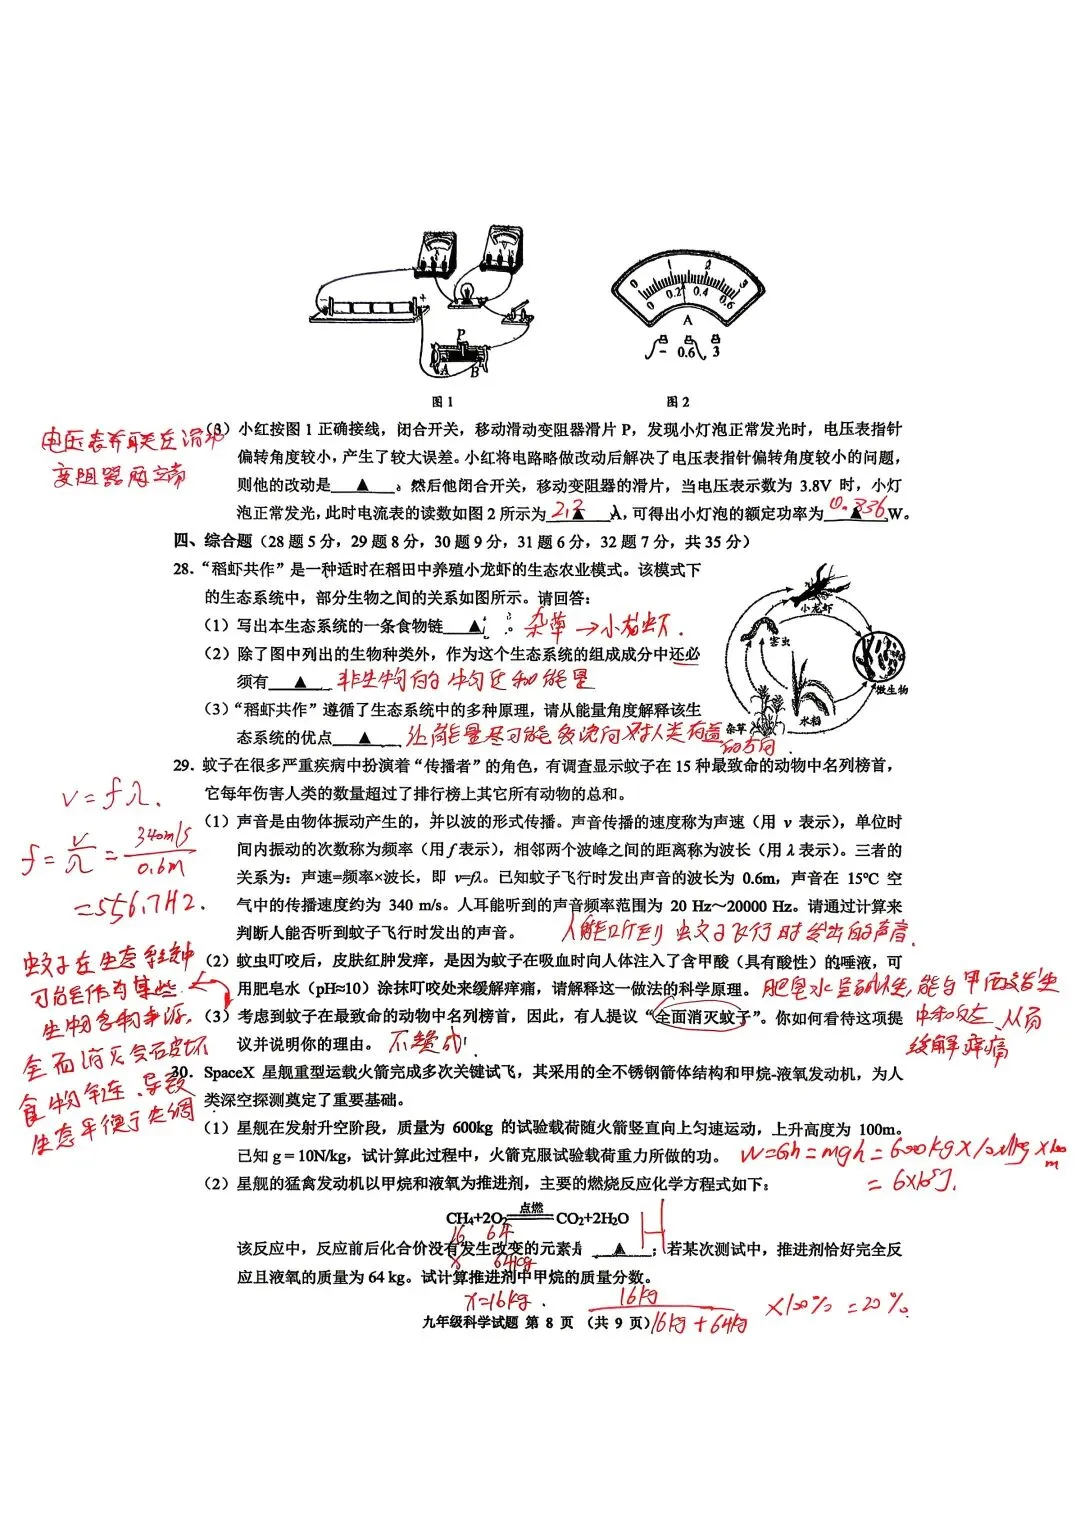 图1
图2
电压表并联在滑动
变阻器两端
(3) 小红按图 1 正确接线，闭合开关，移动滑动变阻器滑片 P，发现小灯泡正常发光时，电压表指针
偏转角度较小，产生了较大误差。小红将电路略做改动后解决了电压表指针偏转角度较小的问题，
则他的改动是 ▲ 。然后他闭合开关，移动变阻器的滑片，当电压表示数为 3.8V 时，小灯
泡正常发光，此时电流表的读数如图 2 所示为 ▲ A，可得出小灯泡的额定功率为 0.836 ▲ W。
四、综合题（28 题 5 分，29 题 8 分，30 题 9 分，31 题 6 分，32 题 7 分，共 35 分）
28．“稻虾共作”是一种适时在稻田中养殖小龙虾的生态农业模式。该模式下
的生态系统中，部分生物之间的关系如图所示。请回答：
（1）写出本生态系统的一条食物链 ▲ 。 杂草→小龙虾.
（2）除了图中列出的生物种类外，作为这个生态系统的组成成分中还必
须有 ▲ 非生物的物质和能量
（3）“稻虾共作”遵循了生态系统中的多种原理，请从能量角度解释该生
态系统的优点 ▲ 让能量尽可能多流向对人类有益
的方向.
小龙虾
害虫
微生物
杂草
水稻
29．蚊子在很多严重疾病中扮演着“传播者”的角色，有调查显示蚊子在 15 种最致命的动物中名列榜首，
它每年伤害人类的数量超过了排行榜上其它所有动物的总和。
（1）声音是由物体振动产生的，并以波的形式传播。声音传播的速度称为声速（用 v 表示），单位时
间内振动的次数称为频率（用 f 表示），相邻两个波峰之间的距离称为波长（用 λ 表示）。三者的
关系为：声速=频率×波长，即 v=fλ。已知蚊子飞行时发出声音的波长为 0.6m，声音在 15℃ 空
气中的传播速度约为 340 m/s。人耳能听到的声音频率范围为 20 Hz～20000 Hz。请通过计算来
判断人能否听到蚊子飞行时发出的声音。 人能听到蚊子飞行时发出的声音.
v=fλ.
f=v/λ=340m/s/0.6m
=556.7Hz.
（2）蚊虫叮咬后，皮肤红肿发痒，是因为蚊子在吸血时向人体注入了含甲酸（具有酸性）的唾液，可
用肥皂水（pH≈10）涂抹叮咬处来缓解痒痛，请解释这一做法的科学原理。 肥皂水呈碱性，能与甲酸发生
中和反应、从而
缓解痒痛
（3）考虑到蚊子在最致命的动物中名列榜首，因此，有人提议“全面消灭蚊子”。你如何看待这项提
议并说明你的理由。 不赞成！
蚊子在生态系统中
可能作为某些
生物食物来源.
全面消灭会破坏
食物链、导致
生态平衡失调
30．SpaceX 星舰重型运载火箭完成多次关键试飞，其采用的全不锈钢箭体结构和甲烷-液氧发动机，为人
类深空探测奠定了重要基础。
（1）星舰在发射升空阶段，质量为 600kg 的试验载荷随火箭竖直向上匀速运动，上升高度为 100m。
已知 g = 10N/kg，试计算此过程中，火箭克服试验载荷重力所做的功。 W=Gh=mgh=600kg×10N/kg×100m
=6×10⁵J.
（2）星舰的猛禽发动机以甲烷和液氧为推进剂，主要的燃烧反应化学方程式如下：
CH₄+2O₂ 点燃 CO₂+2H₂O
16 64
x 64kg
该反应中，反应前后化合价没有发生改变的元素是 ▲ H ；若某次测试中，推进剂恰好完全反
应且液氧的质量为 64 kg。试计算推进剂中甲烷的质量分数。
x=16kg. 16kg/16kg+64kg ×100%=20%.
九年级科学试题 第 8 页 （共 9 页）